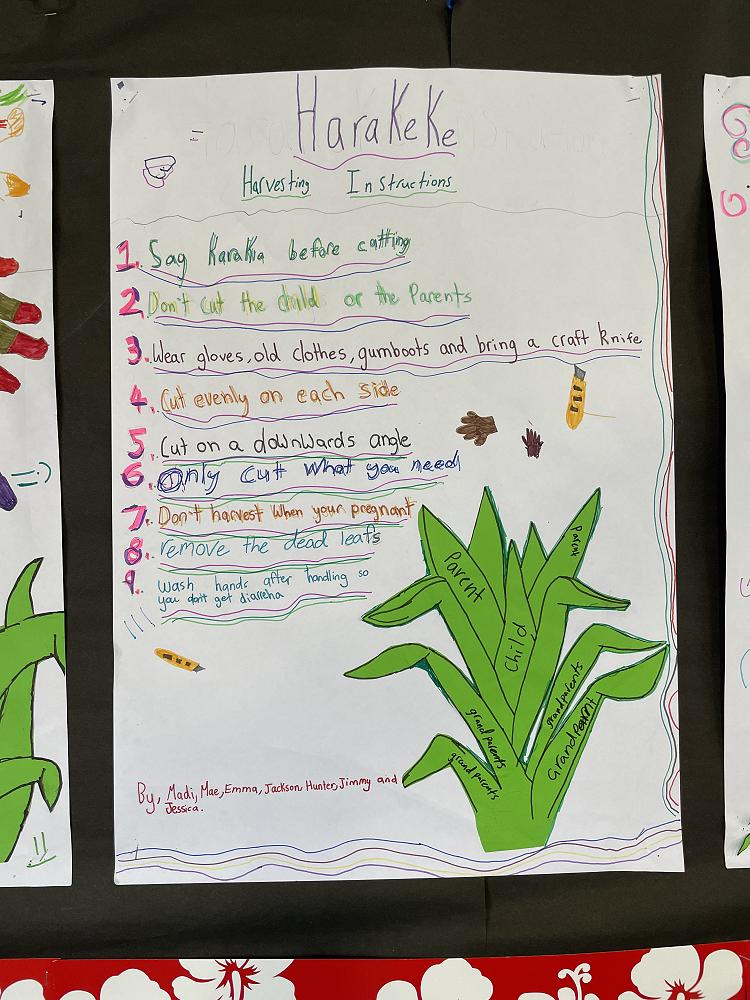 HaraKeKe
Harvesting Instructions
1. Say Karakia before cutting
2 Don't cut the child or the Parents
3. Wear gloves, old clothes, gumboots and bring a craft knife
4. Cut evenly on each side
5. Cut on a downwards angle
6. Only cut what you need
7. Don't harvest when your pregnant
8. remove the dead leafs
9. wash hands after handling so
you don't get diarreha
Parent
Parent
Child
grandparents
grand parents
Grandparent
grand parents
By, Madi, Mae, Emma, Jackson, Hunter, Jimmy and
Jessica.